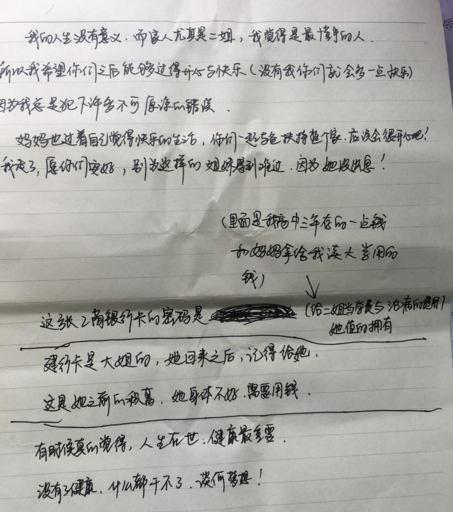 我的人生没有意义. 而家人尤其是二姐, 我觉得是最懂事的人.
所以我希望你们之后能够过得开心与快乐 (没有我你们就会多一点快乐)
因为我总是犯下许多不可原谅的错误.
妈妈也过着自己觉得快乐的生活, 你们一起 扶持整个家. 应该会很开心吧!
我走了, 愿你们安好, 别为这样的姐妹感到难过. 因为她没出息!
(里面是我高中三年存的一点钱
和妈妈拿给我读大学用的
钱)
这张工商银行卡的密码是 (给二姐当学费与治病的费用)
她值的拥有
建行卡是大姐的, 她回来之后, 记得给她.
这是她之前的积蓄. 她身体不好. 需要用钱.
有时候真的觉得, 人生在世. 健康最重要.
没有了健康. 什么都干不了. 谈何梦想!